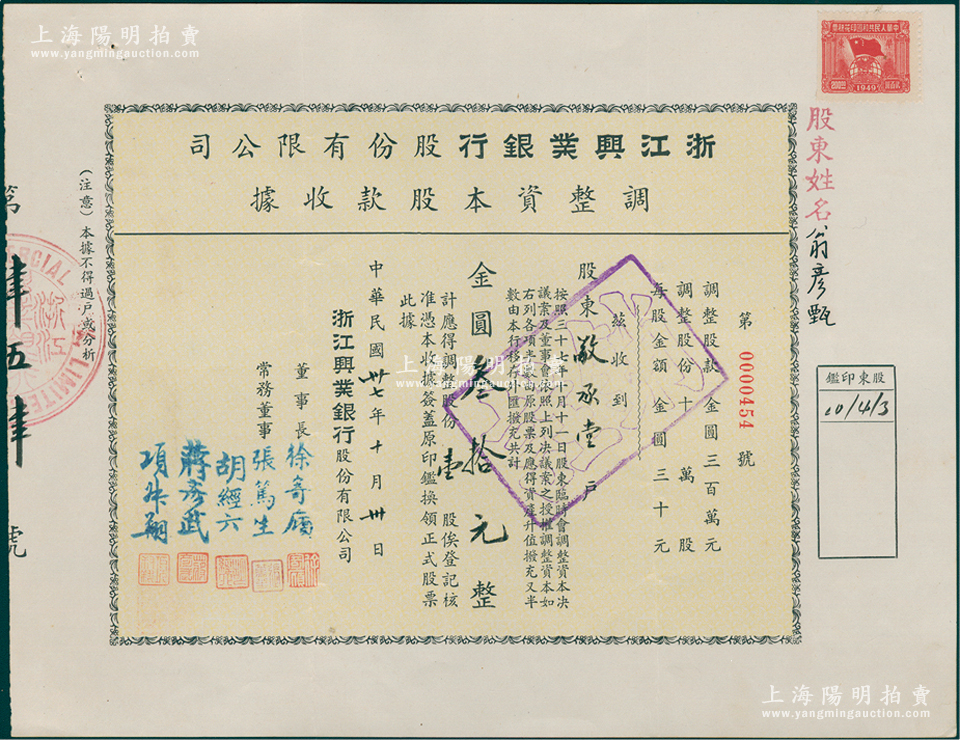 上海陽明拍賣
www.yangmingauction.com
中華人民共和國印花稅票
1949
浙江興業銀行股份有限公司
調整資本股款收據
股東姓名翁彥甄
股東印鑑
10/4/3
第 0000454 號
調整股款金圓三百萬元
調整股份十萬股
每股金額金圓三十元
茲收到
股東敬承堂戶
按照三十七年十月十一日股東臨時會調整資本決
議案及董事會依照上列決議案之授權調整資本如
右列各項
數由本行移存外匯撥充共計
金圓叁拾元整
計應得調整股份壹股俟登記核
准憑本收據簽蓋原印鑑換領正式股票
此據
中華民國卅七年十月卅日
浙江興業銀行股份有限公司
董事長 徐寄廎
常務董事 張篤生
胡經六
蔣彥武
項叔翔
(注意)本據不得過戶或分析
第肆五肆號
COMMERCIAL
LIMITED
浙江
上海陽明拍賣
www.yangmingauction.com
上海陽明拍賣
www.yangmingauction.com